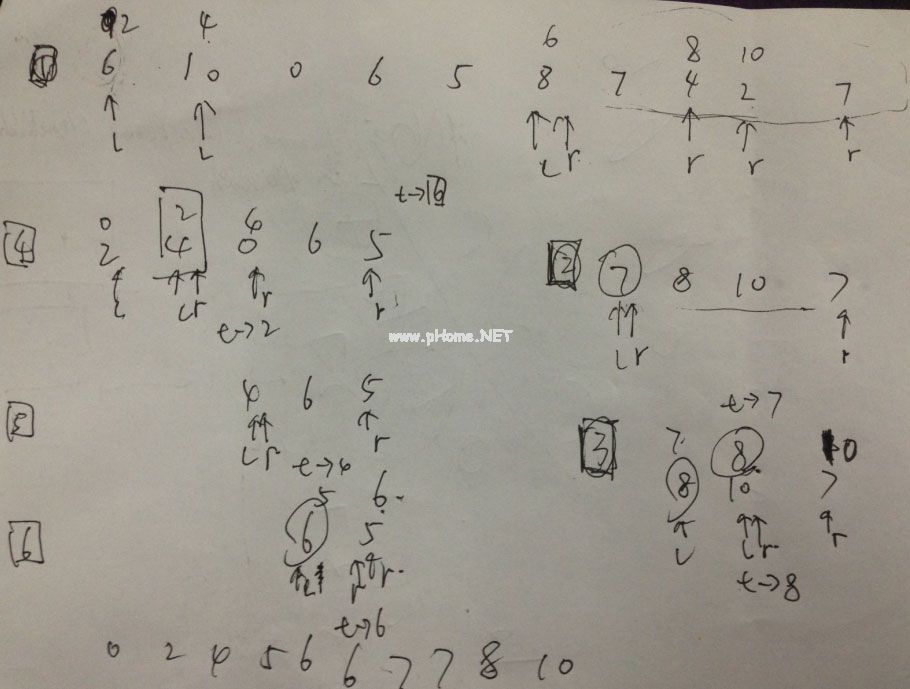 2 4 6 8 10
1 6 10 0 6 5 8 7 4 2 7
L L L r r r r
t→6
0 2 4
4 2 4 0 6 5
L L r r r
t→2
2 7 8 10 7
L r r
www.pHome.NET
5 4 6 5
L r r
t→4
t→7
7 8 10
3 8 10 7
L L r r
t→8
5 6
6 6 5
L r r
t→6
0 2 4 5 6 6 7 7 8 10